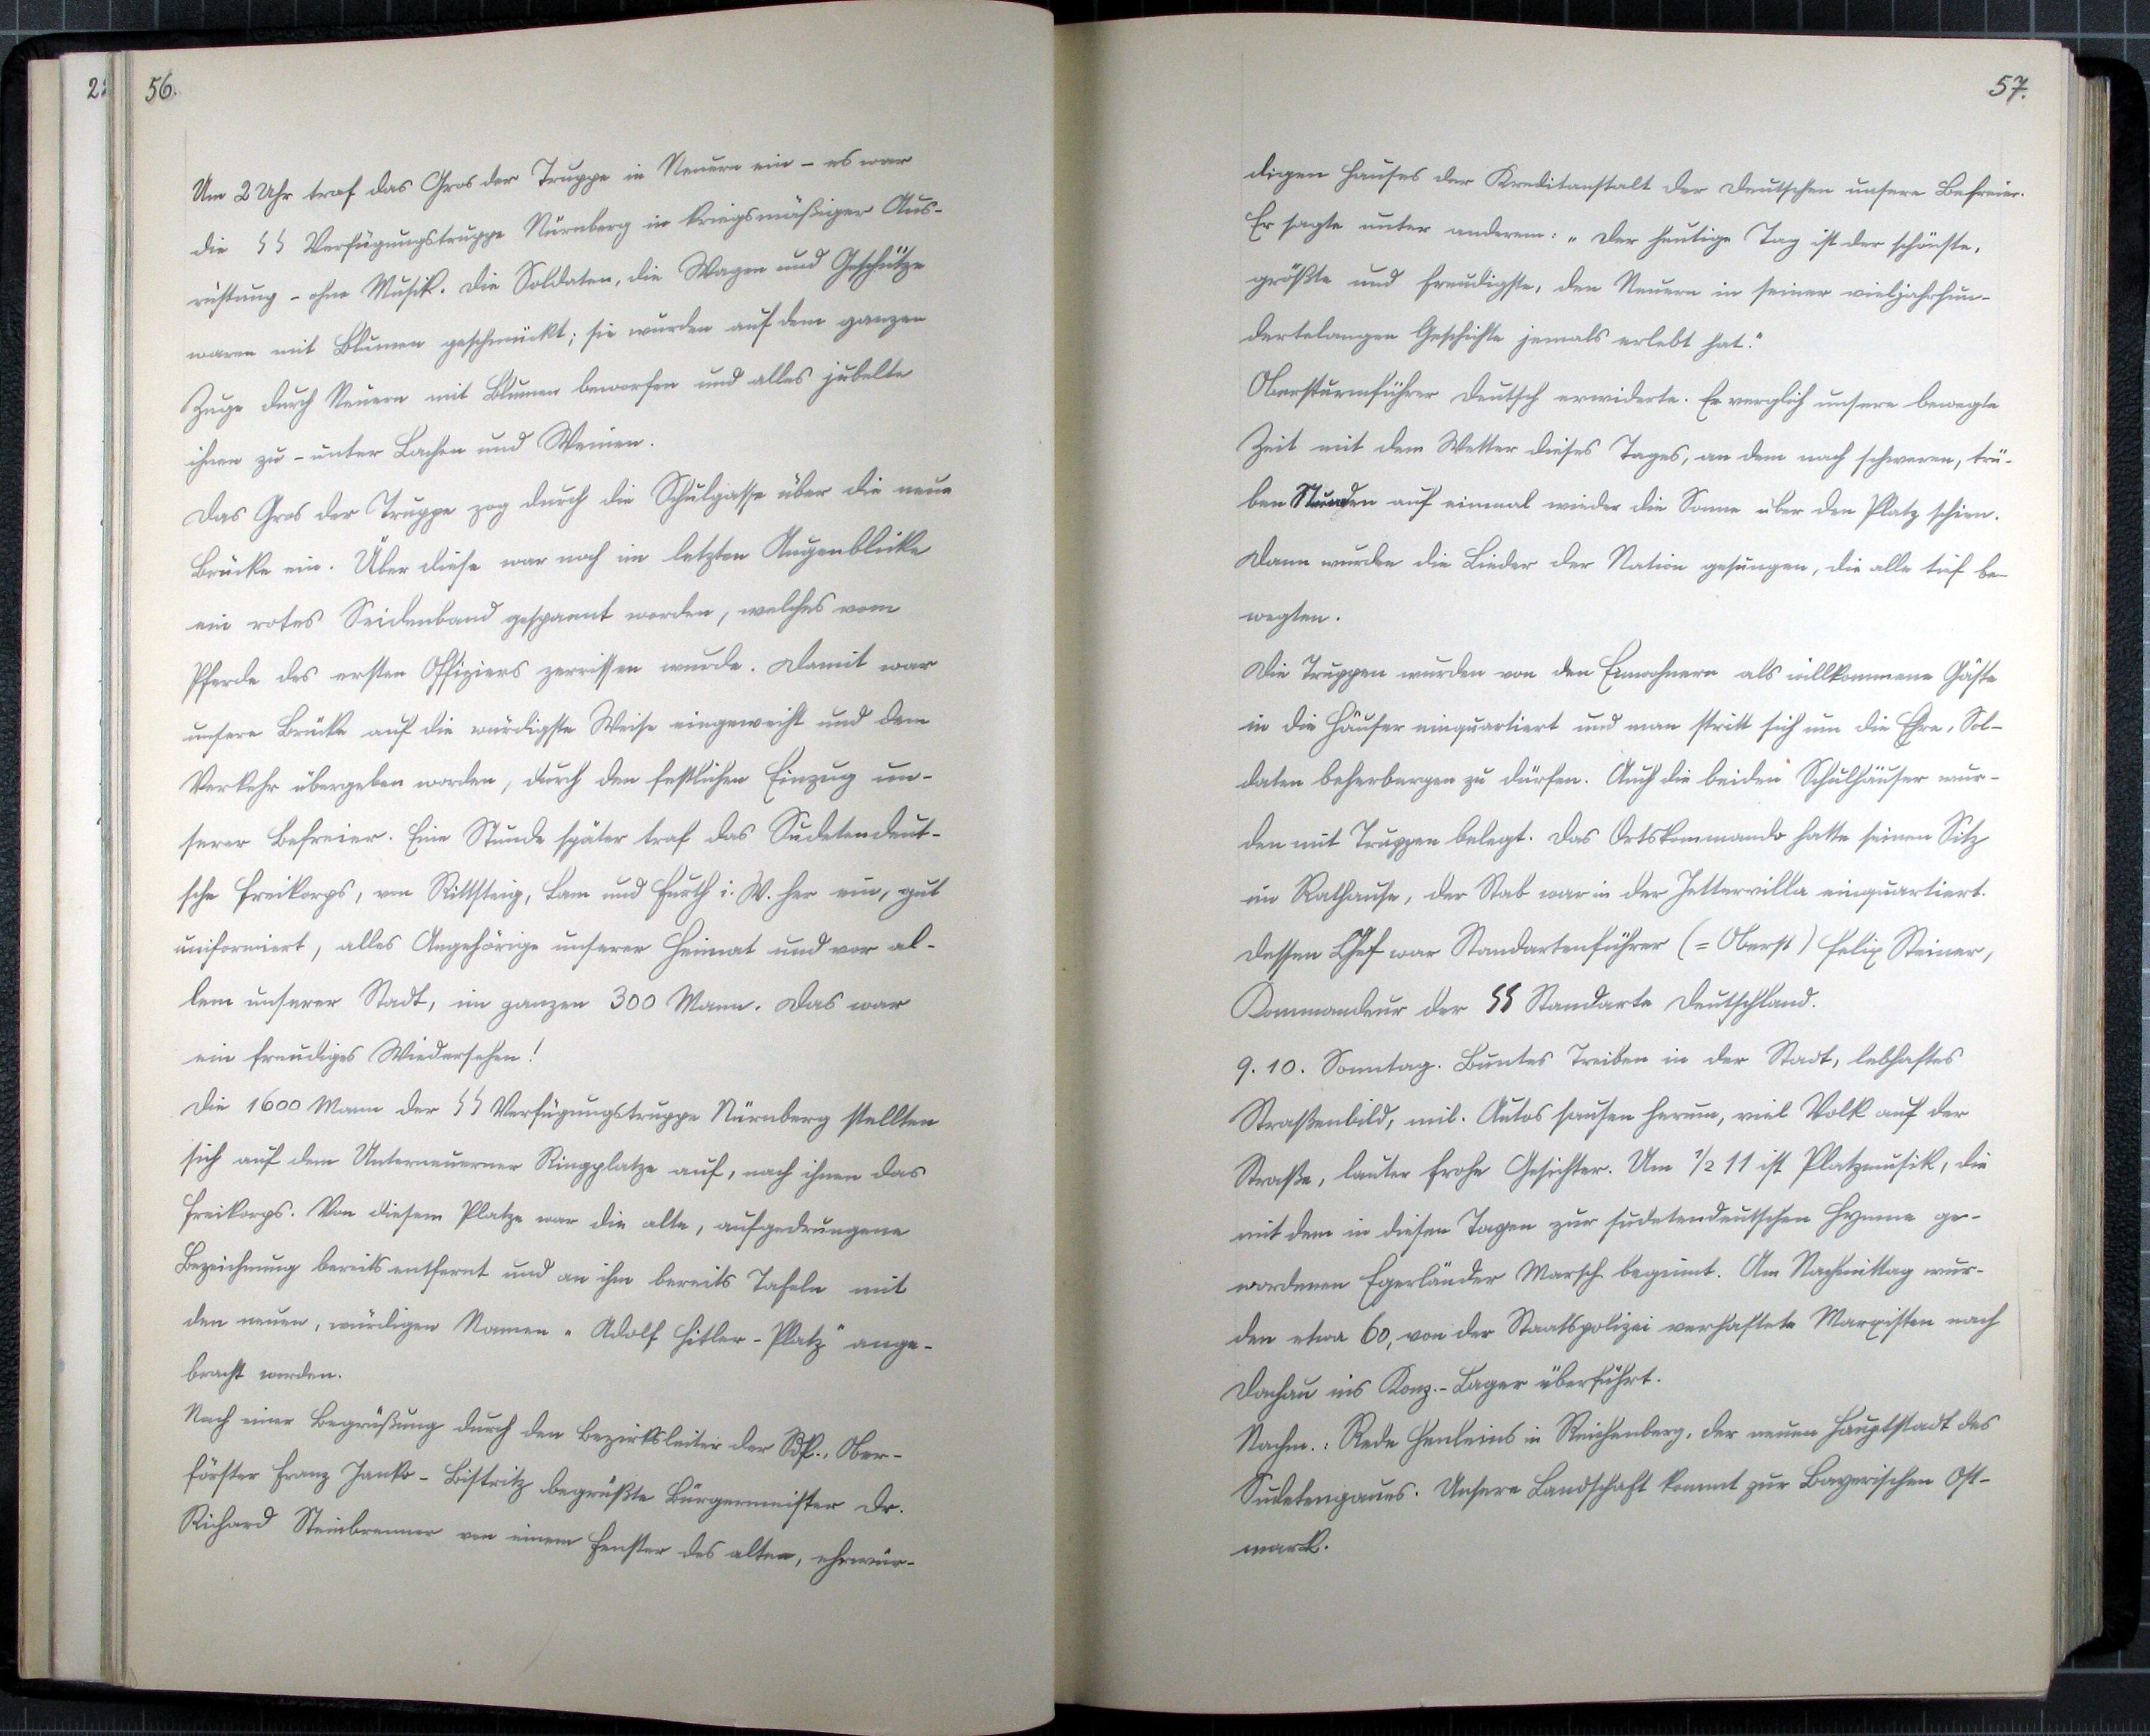 56.
Um 2 Uhr traf das Gros der Truppe in Neuern ein – es war
die SS Verfügungstruppe Nürnberg in kriegsmäßiger Aus-
rüstung – ohne Musik. Die Soldaten, die Wagen und Geschütze
waren mit Blumen geschmückt; sie wurden auf dem ganzen
Zuge durch Neuern mit Blumen beworfen und alles jubelte
ihnen zu – unter Lachen und Weinen.
Das Gros der Truppe zog durch die Schulgasse über die neue
Brücke ein. Über diese war noch im letzten Augenblicke
ein rotes Seidenband gespannt worden, welches vom
Pferde des ersten Offiziers zerrissen wurde. Damit war
unsere Brücke auf die würdigste Weise eingeweiht und dem
Verkehr übergeben worden, durch den festlichen Einzug un-
serer Befreier. Eine Stunde später traf das Sudetendeut-
sche Freikorps, von Rittsteig, Lam und Furth i. W. her ein, gut
uniformiert, alles Angehörige unserer Heimat und vor al-
lem unserer Stadt, im ganzen 300 Mann. Das war
ein freudiges Wiedersehen!
Die 1600 Mann der SS Verfügungstruppe Nürnberg stellten
sich auf dem Unterneuerner Ringplatze auf, nach ihnen das
Freikorps. Von diesem Platze war die alte, aufgedrungene
Bezeichnung bereits entfernt und an ihm bereits Tafeln mit
den neuen, würdigen Namen „Adolf Hitler-Platz" ange-
bracht worden.
Nach einer Begrüßung durch den Bezirksleiter der SdP., Ober-
förster Franz Janko-Bistritz begrüßte Bürgermeister Dr.
Richard Steinbrenner von einem Fenster des alten, ehrwür-
57.
digen Hauses der Kreditanstalt der Deutschen unsere Befreier.
Er sagte unter anderem: „Der heutige Tag ist der schönste,
größte und freudigste, den Neuern in seiner vieljahrhun-
dertelangen Geschichte jemals erlebt hat."
Obersturmführer Deutsch erwiderte. Er verglich unsere bewegte
Zeit mit dem Wetter dieses Tages, an dem nach schweren, trü-
ben Stunden auf einmal wieder die Sonne über den Platz schien.
Dann wurden die Lieder der Nation gesungen, die alle tief be-
wegten.
Die Truppen wurden von den Einwohnern als willkommene Gäste
in die Häuser einquartiert und man stritt sich um die Ehre, Sol-
daten beherbergen zu dürfen. Auch die beiden Schulhäuser wur-
den mit Truppen belegt. Das Ortskommando hatte seinen Sitz
im Rathause, der Stab war in der Jettervilla einquartiert.
Dessen Chef war Standartenführer (= Oberst) Felix Steiner,
Kommandeur der SS Standarte Deutschland.
9. 10. Sonntag. Buntes Treiben in der Stadt, lebhaftes
Straßenbild, mil. Autos sausen herum, viel Volk auf der
Straße, lauter frohe Gesichter. Um 1/2 11 ist Platzmusik, die
mit dem in diesen Tagen zur sudetendeutschen Hymne ge-
wordenen Egerländer Marsch beginnt. Am Nachmittag wur-
den etwa 60, von der Staatspolizei verhaftete Marxisten nach
Dachau ins Konz.-Lager überführt.
Nachm.: Rede Henleins in Reichenberg, der neuen Hauptstadt des
Sudetengaues. Unsere Landschaft kommt zur Bayerischen Ost-
mark.